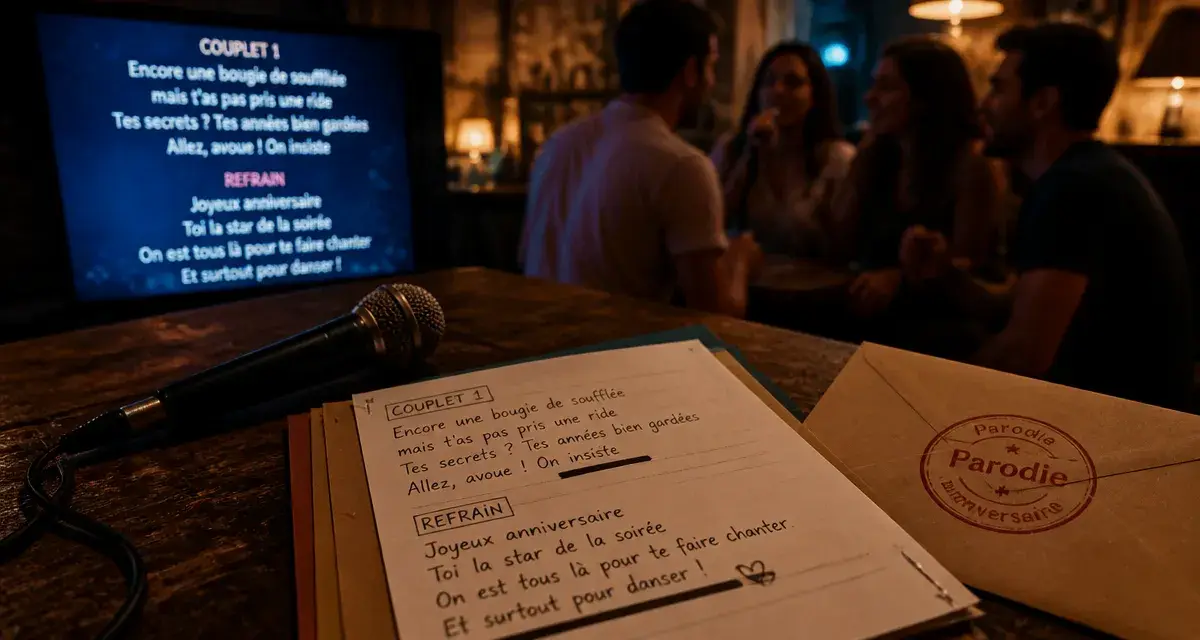 COUPLET 1
Encore une bougie de soufflée
mais t'as pas pris une ride
Tes secrets ? Tes années bien gardées
Allez, avoue ! On insiste
REFRAIN
Joyeux anniversaire
Toi la star de la soirée
On est tous là pour te faire chanter
Et surtout pour danser !
COUPLET 1
Encore une bougie de soufflée
mais t'as pas pris une ride
Tes secrets ? Tes années bien gardées
Allez, avoue ! On insiste
REFRAIN
Joyeux anniversaire
Toi la star de la soirée
On est tous là pour te faire chanter.
Et surtout pour danser !
Parodie
Parodie
anniversaire